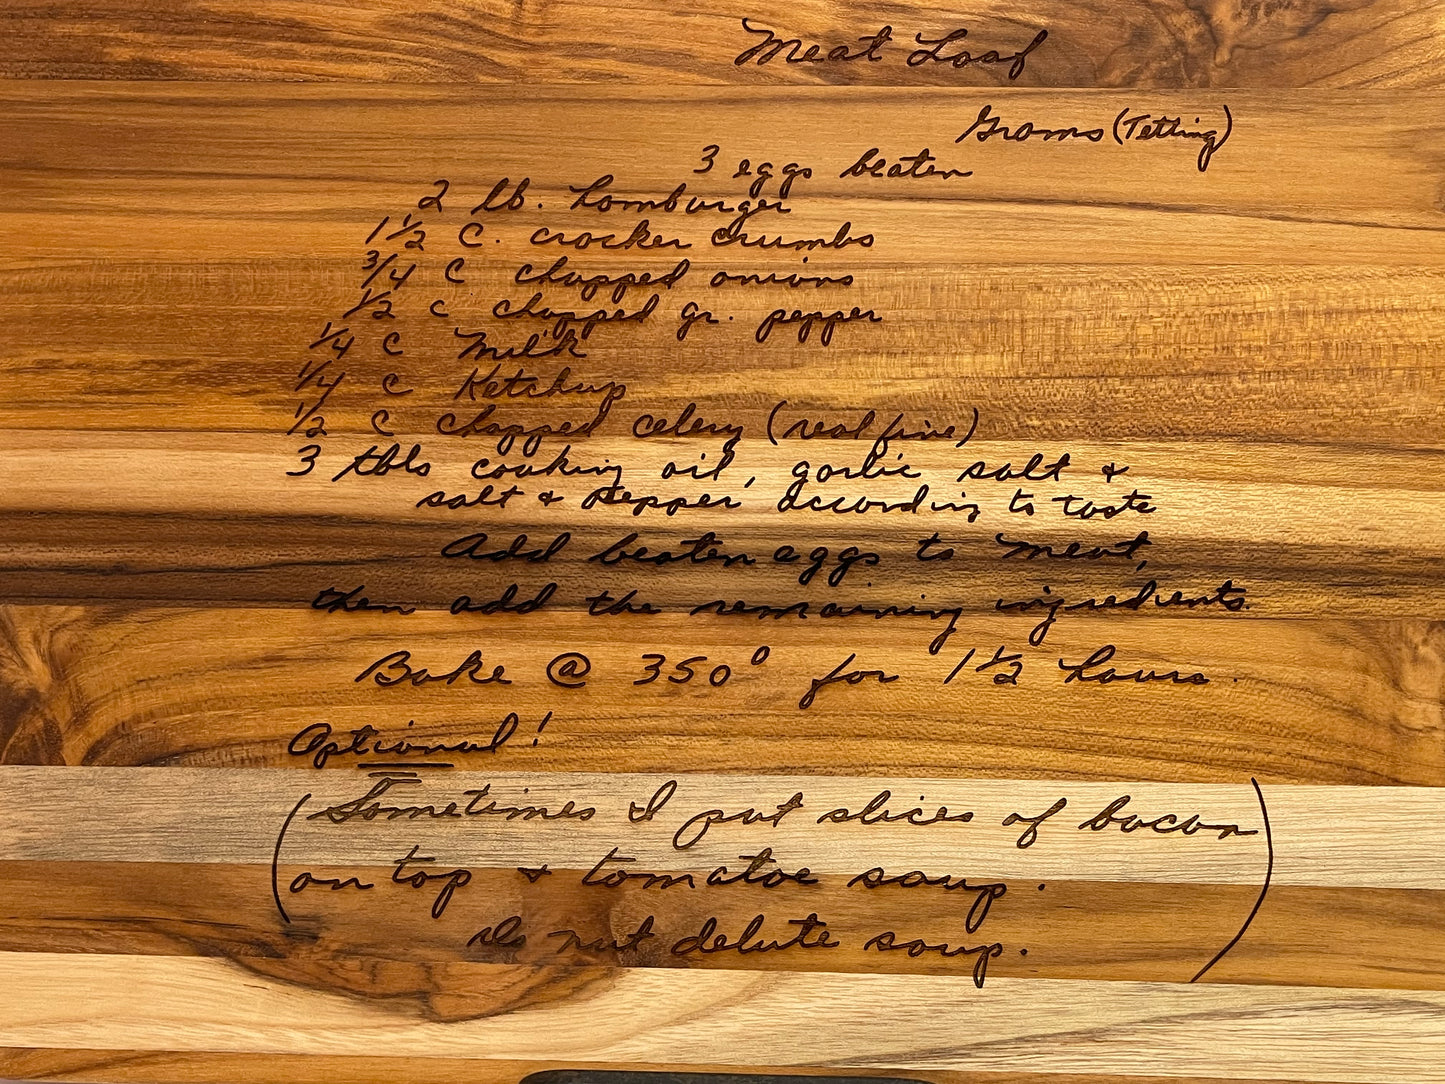 Meat Loaf
Grams (Tetting)
3 eggs beaten
2 lb. hamburger
1 1/2 C. cracker crumbs
3/4 C chopped onions
1/2 C chopped gr. pepper
1/4 C Milk
1/4 C Ketchup
1/2 C chopped celery (real fine)
3 tbls cooking oil, garlic salt &
salt & Pepper according to taste
Add beaten eggs to meat,
then add the remaining ingredients.
Bake @ 350° for 1 1/2 hours.
Optional!
(Sometimes I put slices of bacon
on top & tomatoe soup.
Do not delute soup.)